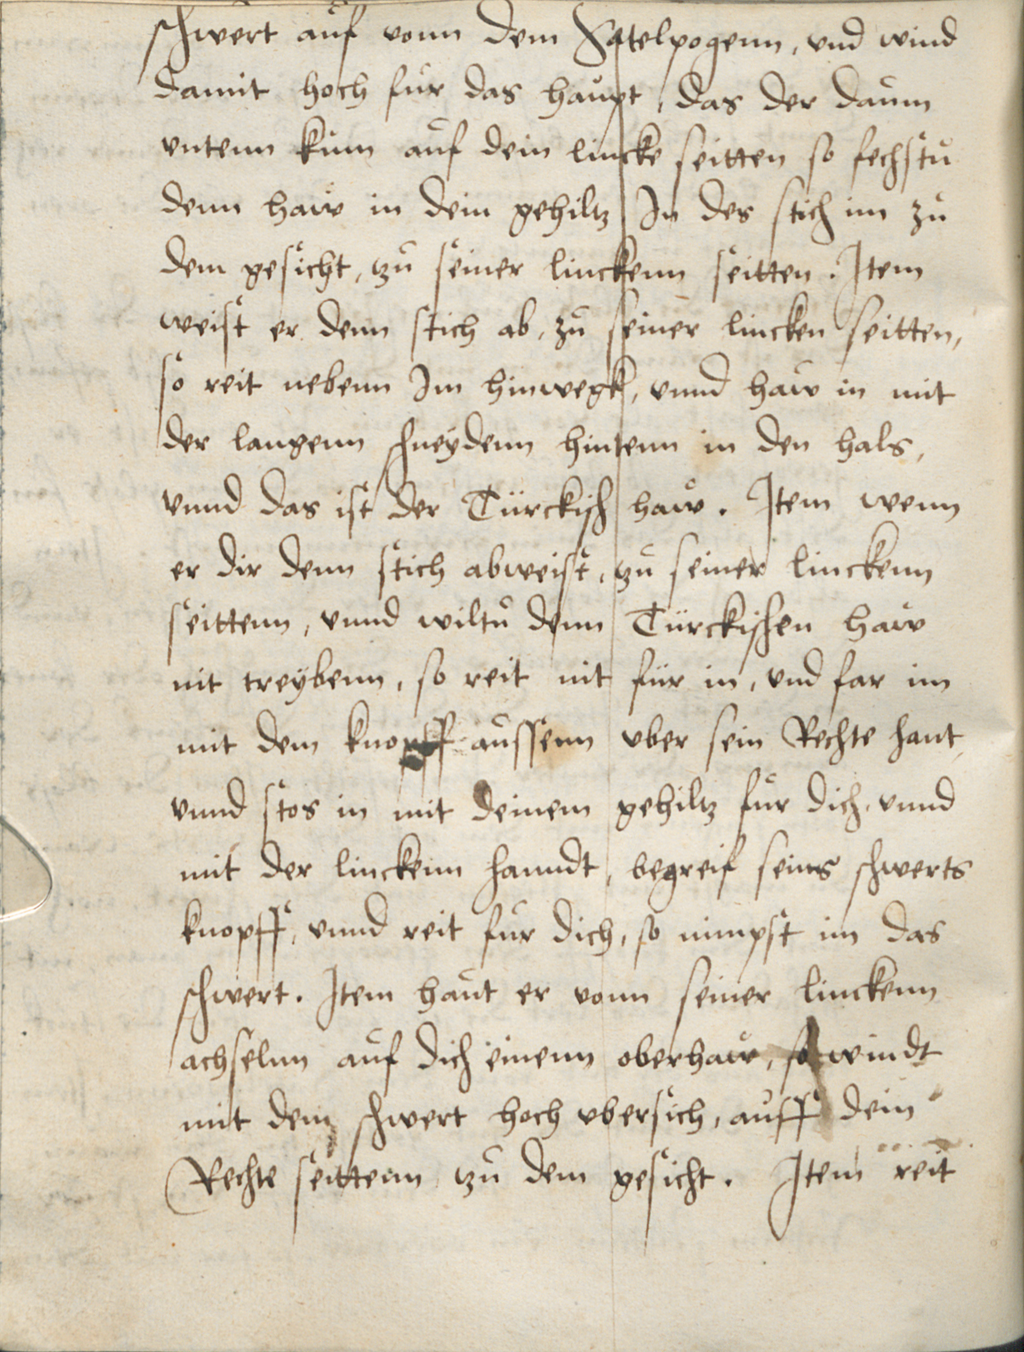 schwert auf vonn dem Satelpogenn, vnd wind
damit hoch fur das haupt, das der daum
vntenn kum auf dein lincke seitten so fechstu
denn haw in dein gehiltz In des stich im zu
dem gesicht, tzu seiner linckenn seitten. Item
weist er denn stich ab, zu seiner lincken seitten,
so reit nebenn Im hinwegk, vnnd haw in mit
der langenn schneydenn hintenn in den hals,
vnnd das ist der Türckisch haw. Item wenn
er dir denn stich abweist, tzu seiner linckenn
seittenn, vnnd wiltu denn Türckischen haw
nit treybenn, so reit nit für in, vnd far im
mit dem knopff aussenn vber sein Rechte hant,
vnnd stos in mit deinem gehiltz fur dich, vnnd
mit der linckenn hanndt, begreif seins schwerts
knopff, vnnd reit fur dich, so nimpst im das
schwert. Item haut er vonn seiner linckenn
achselnn auf dich einenn oberhaw, so windt
mit dem schwert hoch vbersich, auff dein
Rechte seittenn tzu dem gesicht. Item reit